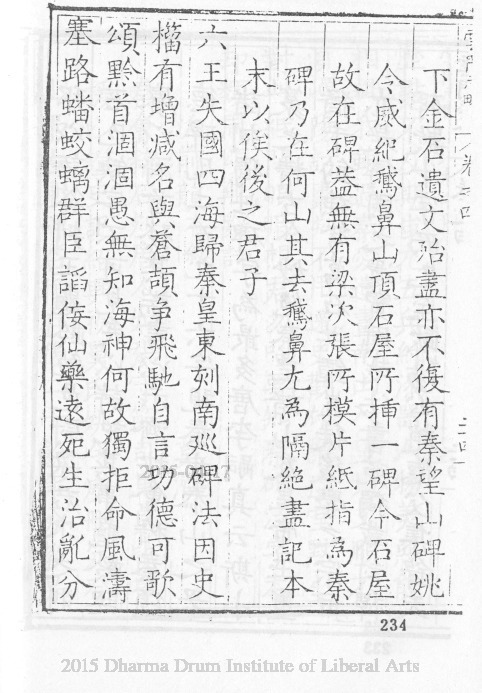 下金石遺文殆盡亦不復有秦望山碑姚
令威紀鵞鼻山頂石屋所揷一碑今石屋
故在碑葢無有梁次張所模片紙指為秦
碑乃在何山其去鵞鼻尤為隔絶盡記本
末以俟後之君子
六王失國四海歸秦皇東刻南廵碑法因史
籀有增减名與蒼頡爭飛馳自言功德可歌
頌黔首涸涸愚無知海神何故獨拒命風濤
塞路蟠蛟螭群臣謟侫仙藥逺死生治亂分
234
2015 Dharma Drum Institute of Liberal Arts